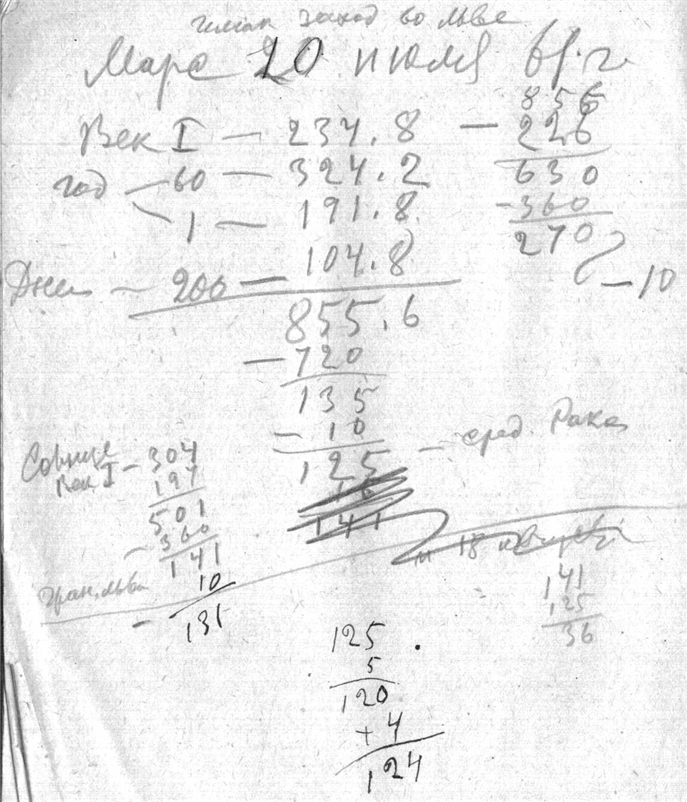 заход во льве
Марс 20 июля 61.г.
856
Век I — 234.8 — 226
год — 60 — 324.2 630
1 — 191.8 -360
104.8 270
Дней — 200 — — 10
855.6
— 720
135
— 10 — сред. Рака
Солнце 125
Век I — 304
197
501 141
— 360
141
10
— 131
141
125
36
125.
5
120
+ 4
124